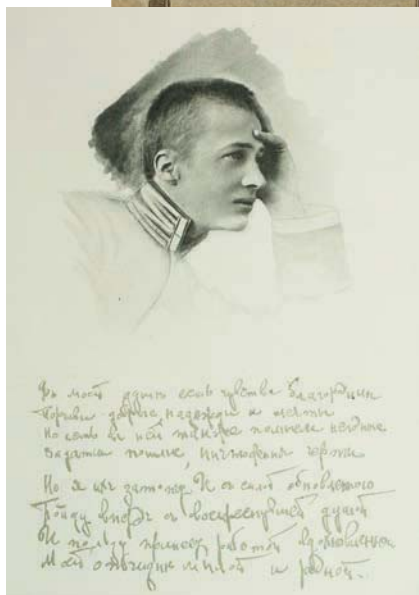 Въ моей душѣ есть чувства благородныя
Порывы добрые, надежды и мечты
Но есть въ ней также
Задатки пошлые, ничтожныя черты
Но я ихъ затопчу. И съ силой обновленною
Пойду впередъ съ воскреснувшей душой
И пользу принесу работой вдохновенною
Моей отчизнѣ милой и родной.